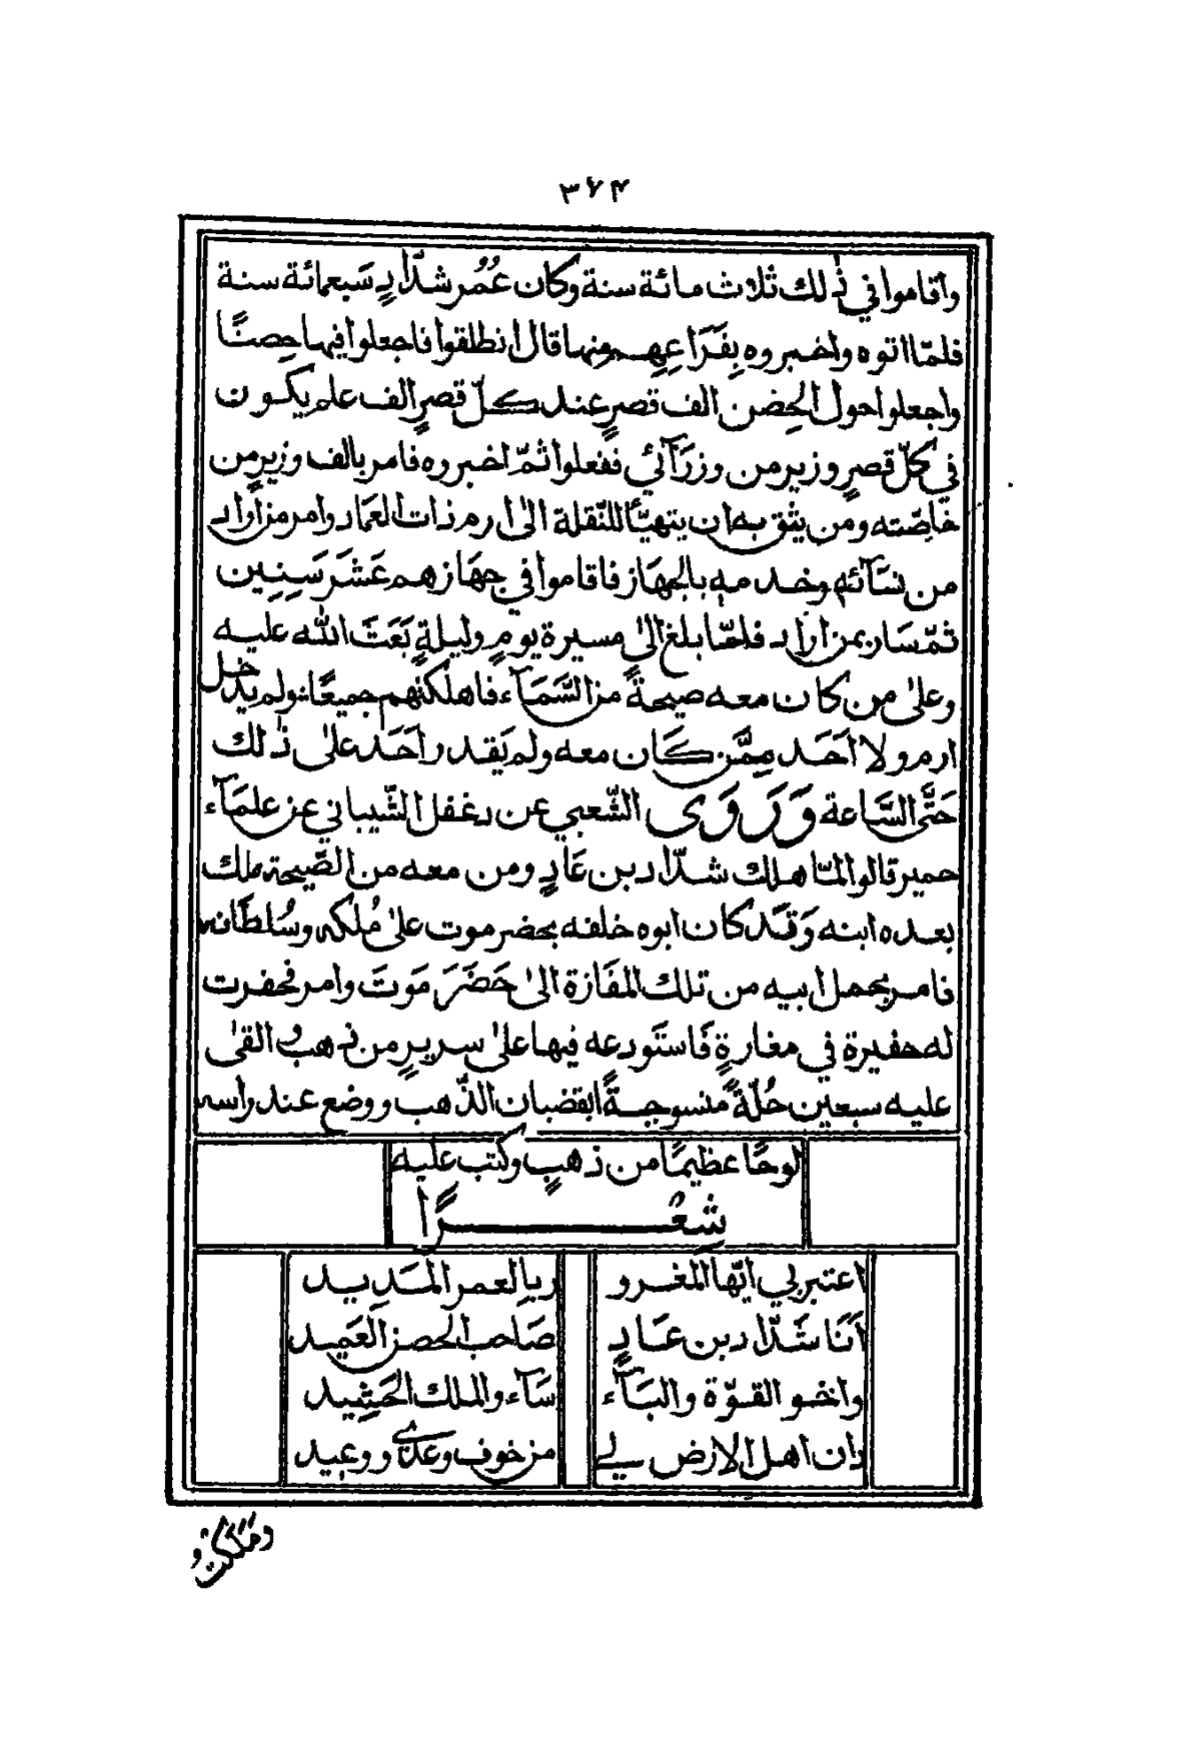 ٣٦٤
واقاموا في ذٰلك ثلاث مائة سنة وكان عُمُر شدّادٍ سَبعمائة سنة
فلمّا اتوه واخبروه بِفَرَاغِهِم منها قال انطلقوا فاجعلوا فيها حِصنًا
واجعلوا حول الحِضن الف قصرٍ عند كلّ قصرٍ الف علم يكون
في كلّ قصرٍ وزير من وزرَآئي ففعلوا ثمّ اخبروه فامر بالف وزيرٍ من
خاصّته ومن يثق به ان يتهيّأ للنّقلة الى ارم ذات العماد وامر من اراد
من نسَآئه وخدمه بالجهَاز فاقاموا في جهَازهم عَشَر سَنِنِين
ثمّ سَار بمن اراد فلمّا بلغ الىٰ مسيرة يومٍ وليلةٍ بَعَثَ الله عليه
وعلىٰ من كان معه صيحةً من السَّمَآء فاهلكتهم جميعًا ولم يدخل
ارم ولا اَحَد مِمَّن كَان معه ولم يَقدر اَحَد علىٰ ذٰلك
حَتَّى السَّاعة وَرَوَى الشّعبي عن دغفل الشّيباني عن علمَآء
حمير قالوا لمّا هلك شدّاد بن عَادٍ ومن معه من الصّيحة ملك
بعده ابنه وَقَد كان ابوه خلفه بحضرموت علىٰ مُلكه وسُلطَانه
فامر بحمل ابيه من تلك المفَازة الىٰ حَضَرَ مَوتَ وامر فحفرت
له حفيرة في مغارةٍ فَاستَودعه فيها علىٰ سريرٍ من ذهب والقىٰ
عليه سبعين حُلّةً منسوجةً بقضبان الذّهب ووضع عند راسه
لوحًا عظيمًا من ذهبٍ وكتب عليه
شِعْرًا
اعتبر بي ايّها المغرو ر بالعمر المَدِيد
اَنَا شَدّاد بن عَادٍ صَاحب الحصن العَمِيد
واخو القوّة والبَآء سَآء والملك الحَشِيد
دان اهل الارض لي من خوف وعدي ووعيد
وملكتُ